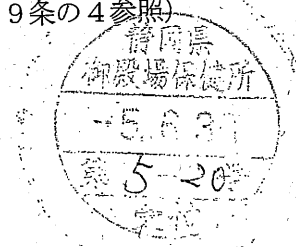 9条の4参照)
静岡県
御殿場保健所
-5.6.3
第5-20号